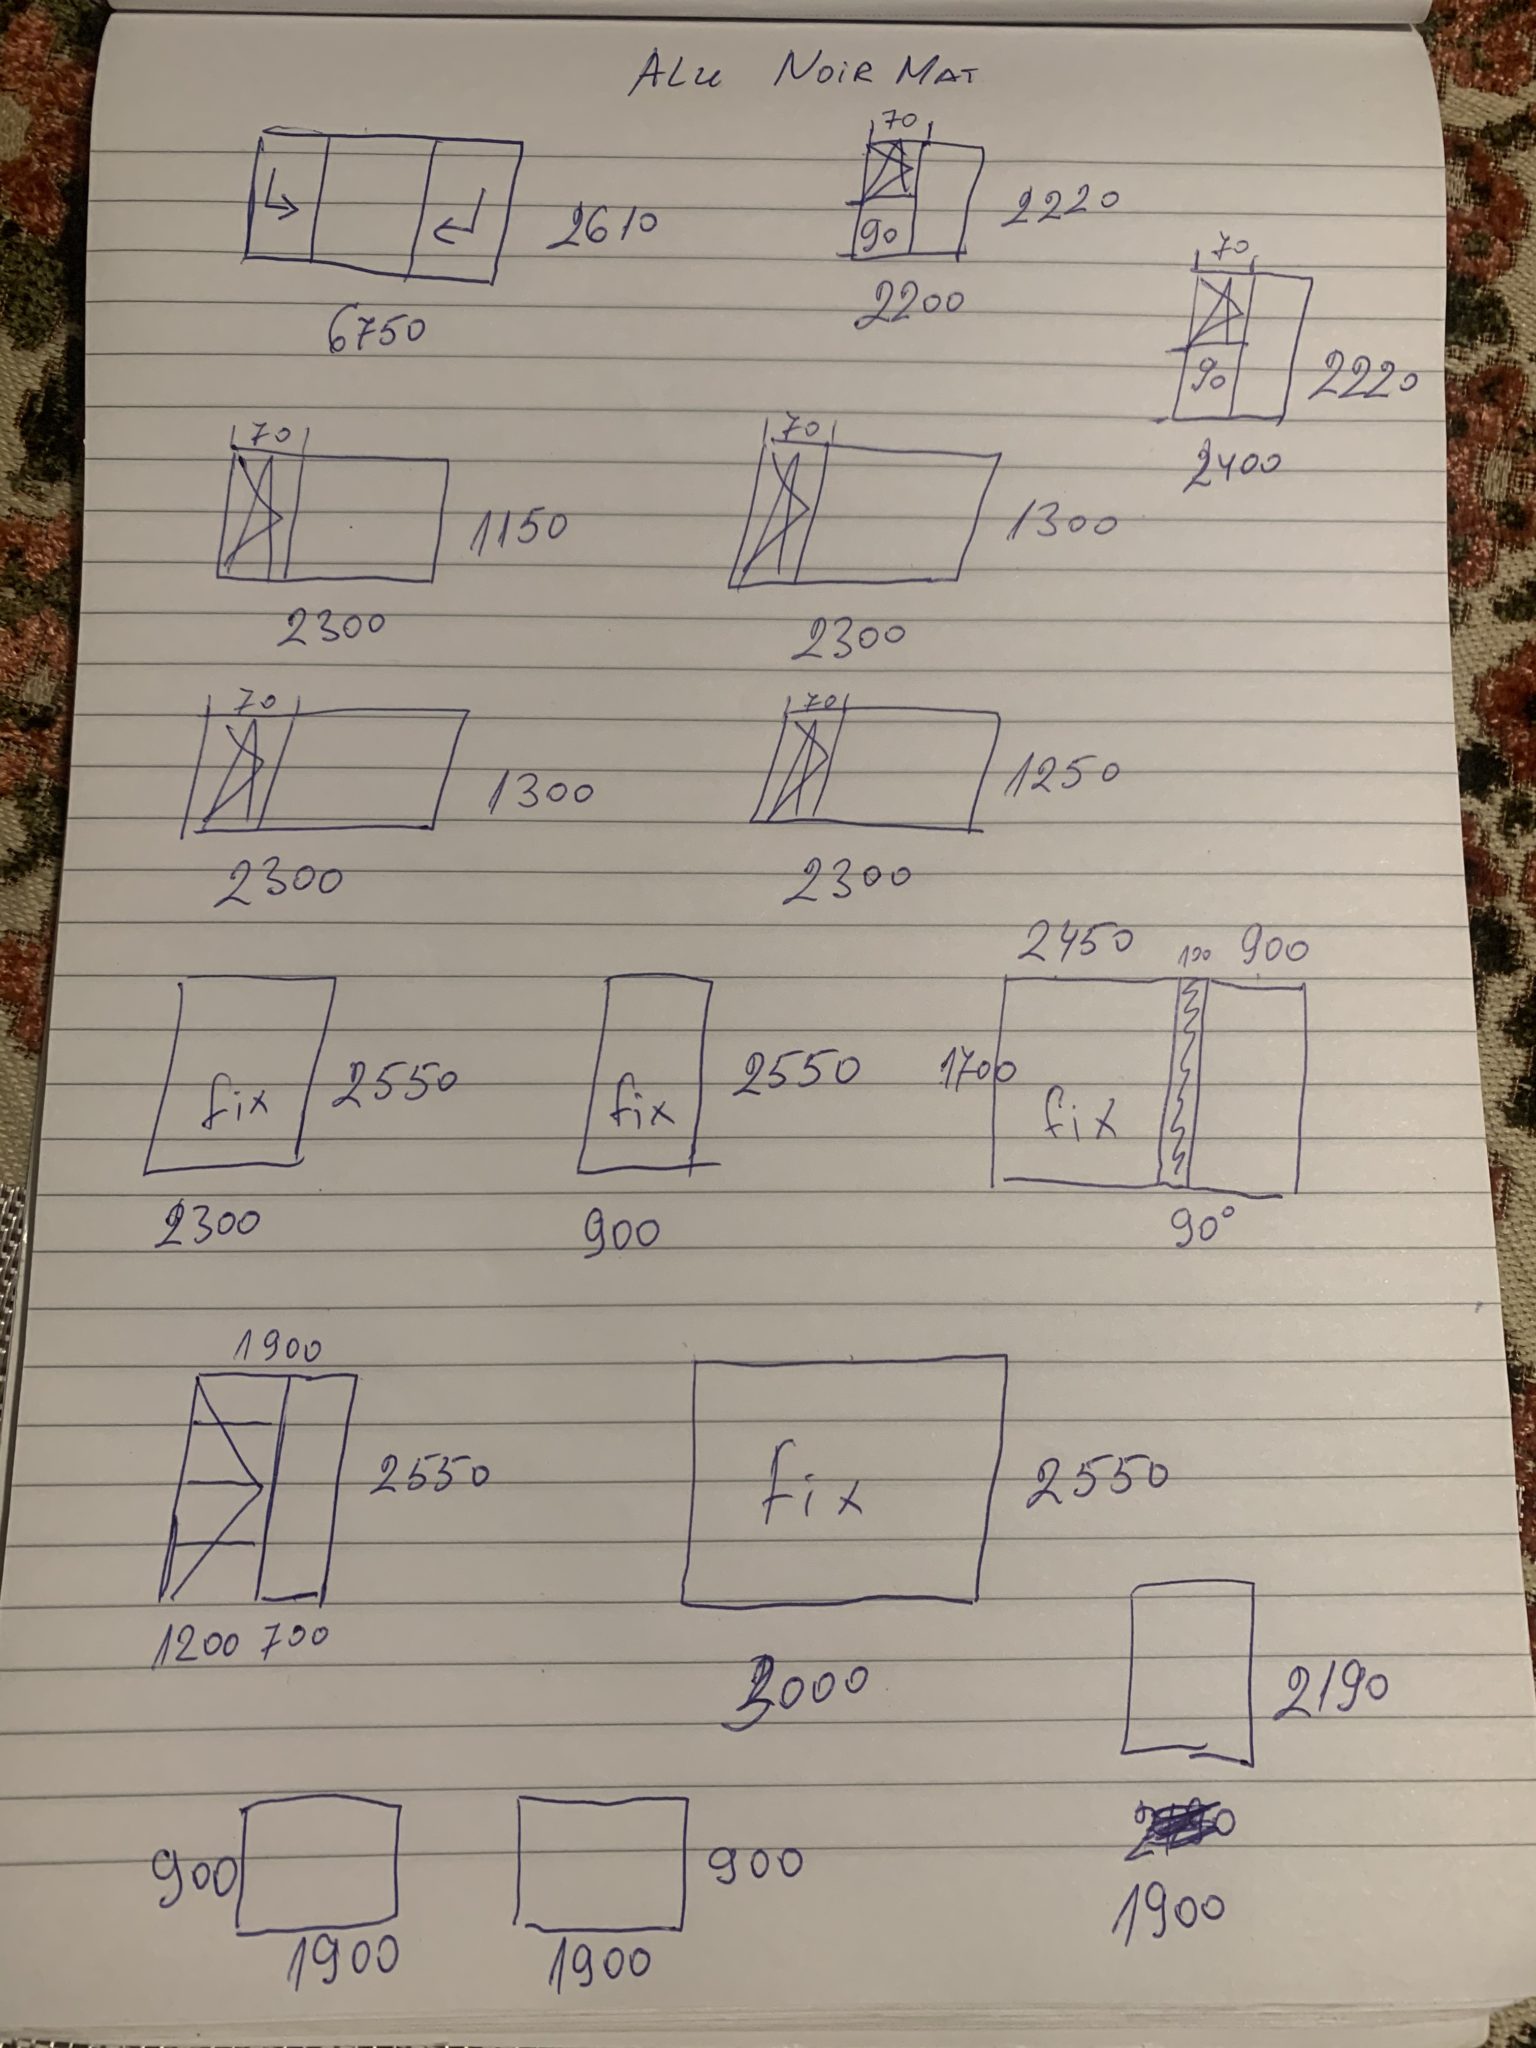 ALu NoiR MAT
70
90
2610
2220
6750
2200
70
90
2220
2400
70
1150
2300
70
1300
2300
70
1300
2300
70
1250
2300
fix
2550
2300
fix
2550
900
2450 100 900
1700
fix
90°
1900
2550
1200 700
fix
2550
3000
2190
1900
900
1900
900
1900